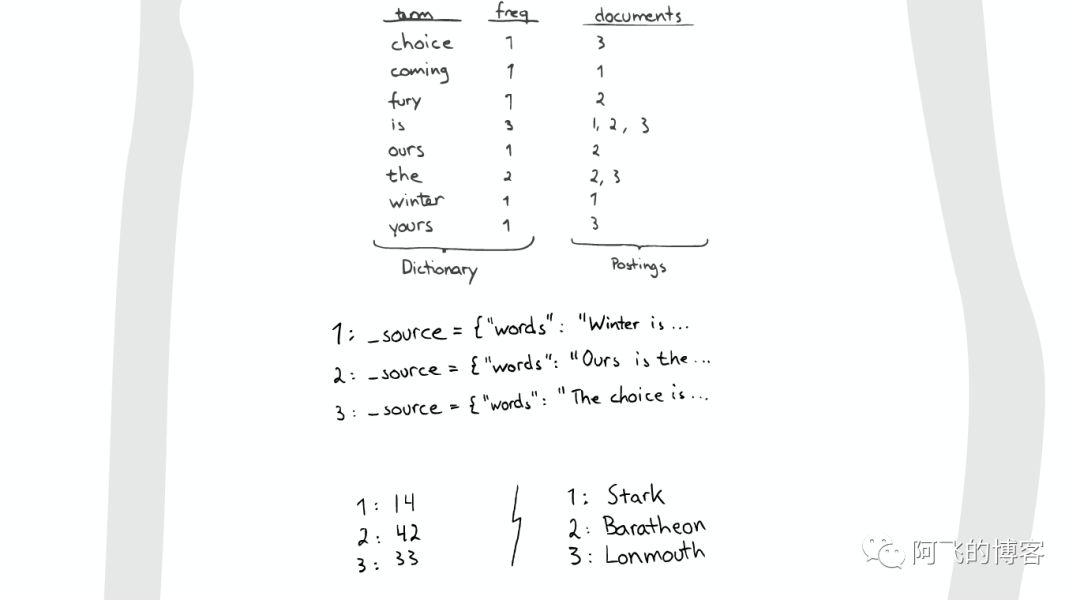 term freq documents
choice 1 3
coming 1 1
fury 1 2
is 3 1, 2, 3
ours 1 2
the 2 2, 3
winter 1 1
yours 1 3
Dictionary Postings
1: _source = {"words": "Winter is ...
2: _source = {"words": "Ours is the ...
3: _source = {"words": "The choice is ...
1: 14 1: Stark
2: 42 2: Baratheon
3: 33 3: Lonmouth
阿飞的博客